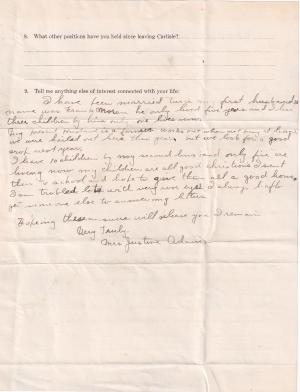 8. What other positions have you held since leaving Carlisle?
9. Tell me anything else of interest connected with your life:
I have been married twice my first husband's
name was Frank he only lived five years and I had
three children by him only one lives now
My present husband is a farmer works out when not busy at
we were hailed out here this year but we look for a good
crop next year
I have 10 children by my second husband only five are
living now my children are all good children I sent
them to school and hope to give them all a good home
I am troubled lots with very sore eyes I always
get some one else to answer my letters
Hoping these answers will please you I remain
Very Truly
Mrs Justine Adams